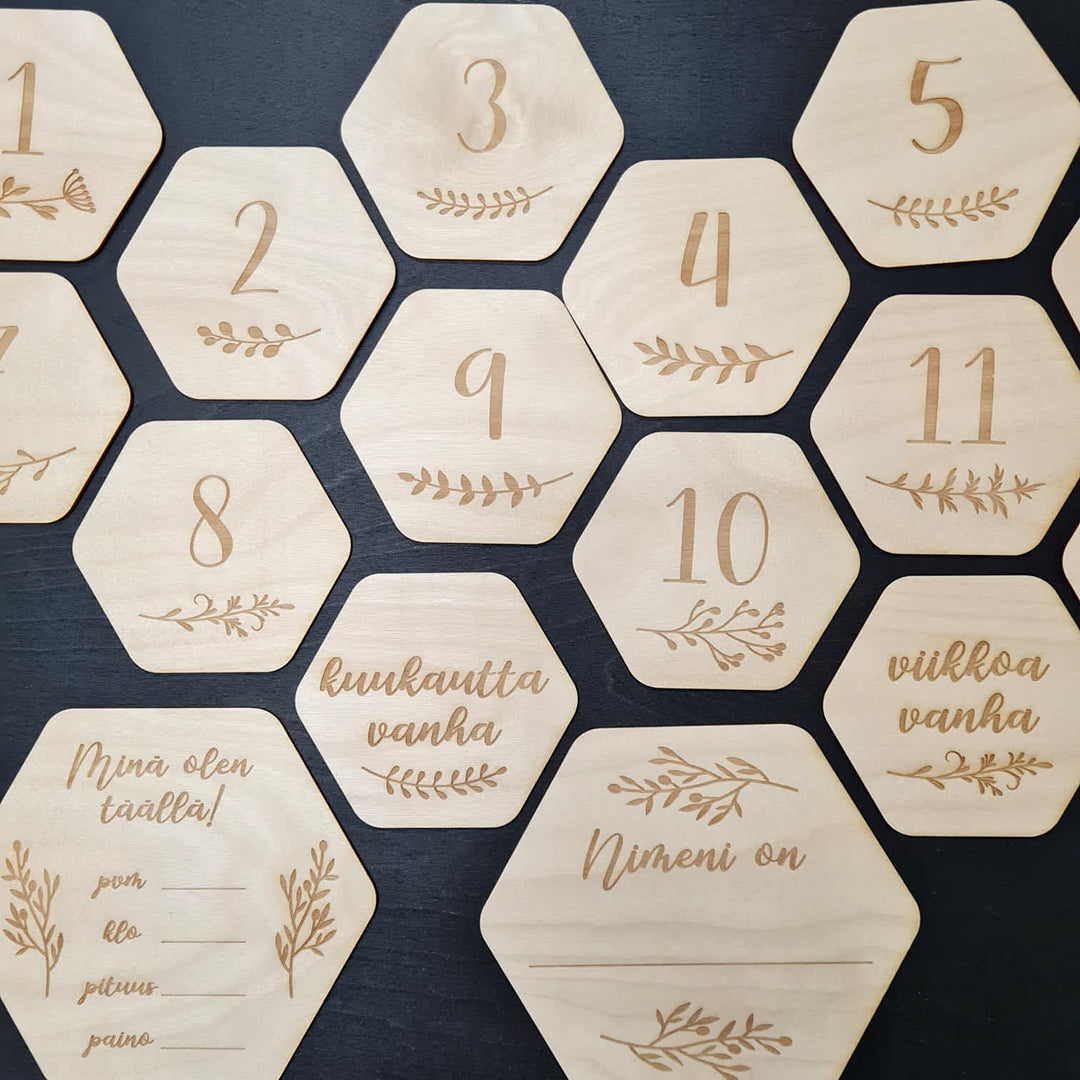 1
3
5
2
4
9
11
8
10
kuukautta
vanha
viikkoa
vanha
Minä olen
täällä!
pvm
klo
pituus
paino
Nimeni on